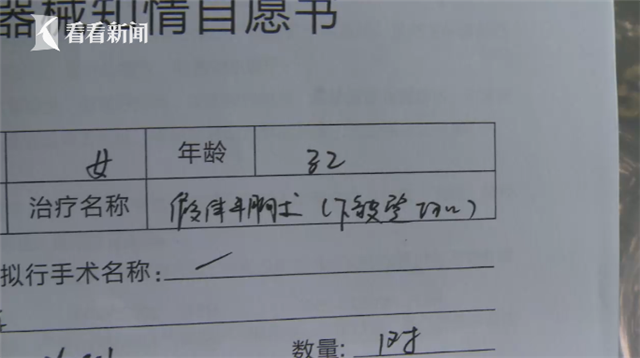 器械知情自愿书
看看新闻
女 年龄 32
治疗名称 假体丰胸术（下皱襞切口）
拟行手术名称：
数量： 1对